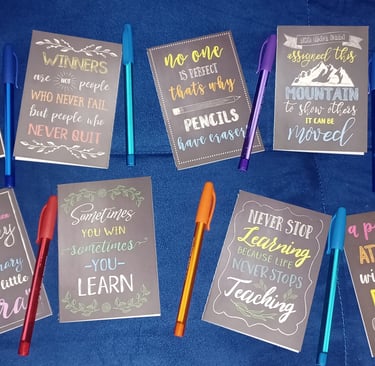 WINNERS
are NOT people
WHO NEVER FAIL
but people who
NEVER QUIT
no one
IS PERFECT
thats why
PENCILS
have erasers
assigned this
MOUNTAIN
to show others
IT CAN BE
moved
Sometimes
YOU WIN
sometimes
-YOU-
LEARN
NEVER STOP
Learning
BECAUSE LIFE
NEVER STOPS
Teaching
little